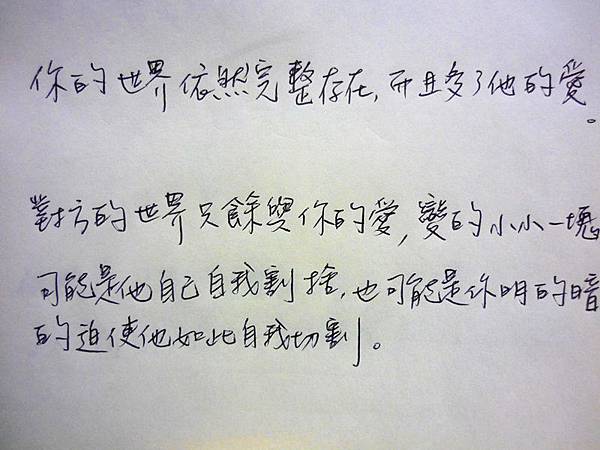 你的世界依然完整存在,而且多了他的愛。
對方的世界只餘與你的愛,變的小小一塊
可能是他自己自我割捨,也可能是你明的暗
的迫使他如此自我切割。